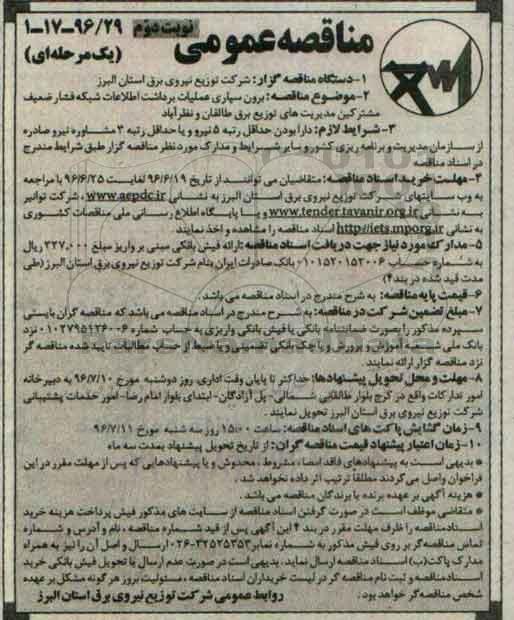 نوبت دوم
۱-۱۷-۹۶/۲۹
مناقصه عمومی
(یک مرحله‌ای)
۱-دستگاه مناقصه گزار: شرکت توزیع نیروی برق استان البرز
۲-موضوع مناقصه: برون سپاری عملیات برداشت اطلاعات شبکه فشار ضعیف
مشترکین مدیریت های توزیع برق طالقان و نظرآباد
۳-شرایط لازم: دارا بودن حداقل رتبه ۵ نیرو و یا حداقل رتبه ۳ مشاوره نیرو صادره
از سازمان مدیریت و برنامه ریزی کشور و سایر شرایط و مدارک مورد نظر مناقصه گزار طبق شرایط مندرج
در اسناد مناقصه
۴-مهلت خرید اسناد مناقصه: متقاضیان می توانند از تاریخ ۹۶/۶/۱۹ لغایت ۹۶/۶/۲۵ با مراجعه
به وب سایتهای شرکت توزیع نیروی برق استان البرز به نشانی www.aepdc.ir، شرکت توانیر
به نشانی www.tender.tavanir.org.ir و یا پایگاه اطلاع رسانی ملی مناقصات کشوری
به نشانی http://iets.mporg.ir اسناد مناقصه را مشاهده و اخذ نمایند.
۵-مدارک مورد نیاز جهت دریافت اسناد مناقصه: ارائه فیش بانکی مبنی بر واریز مبلغ ۳۲۷,۰۰۰ ریال
به شماره حساب ۰۱۰۱۵۲۰۱۵۲۰۰۶ بانک صادرات ایران بنام شرکت توزیع نیروی برق استان البرز (طی
مدت قید شده در بند ۴)
۶-قیمت پایه مناقصه: به شرح مندرج در اسناد مناقصه می باشد.
۷-مبلغ تضمین شرکت در مناقصه: به شرح مندرج در اسناد مناقصه می باشد که مناقصه گران بایستی
سپرده مذکور را بصورت ضمانتنامه بانکی یا فیش بانکی واریزی به حساب شماره ۰۱۰۲۷۹۵۱۲۶۰۰۶ نزد
بانک ملی شعبه آموزش و پرورش و یا چک بانکی تضمینی و یا ضبط از حساب مطالبات تایید شده مناقصه گر
نزد مناقصه گزار ارائه نمایند.
۸-مهلت و محل تحویل پیشنهادها: حداکثر تا پایان وقت اداری، روز دوشنبه مورخ ۹۶/۷/۱۰ به دبیرخانه
امور تدارکات واقع در کرج بلوار طالقانی شمالی- پل آزادگان- ابتدای بلوار امام رضا- امور خدمات پشتیبانی
شرکت توزیع نیروی برق استان البرز تحویل نمایند.
۹-زمان گشایش پاکت های اسناد مناقصه: ساعت ۱۵:۰۰ روز سه شنبه مورخ ۹۶/۷/۱۱
۱۰-زمان اعتبار پیشنهاد قیمت مناقصه گران: از تاریخ تحویل پیشنهاد بمدت سه ماه
* بدیهی است به پیشنهادهای فاقد امضا، مشروط، مخدوش و یا پیشنهادهایی که پس از مهلت مقرر در این
فراخوان واصل می گردند مطلقا ترتیب اثر داده نخواهد شد.
* هزینه آگهی بر عهده برنده یا برندگان مناقصه می باشد.
* متقاضی موظف است در صورت گرفتن اسناد مناقصه از سایت های مذکور فیش پرداخت هزینه خرید
اسناد مناقصه را ظرف مهلت مقرر در بند ۴ این آگهی پس از قید شماره مناقصه، نام و آدرس و شماره
تماس مناقصه گر بر روی فیش مذکور به شماره نمابر ۳۲۵۲۵۳۵۳-۰۲۶ ارسال و اصل آن را نیز به همراه
مدارک پاکت (ب) اسناد مناقصه ارسال نماید. بدیهی است در صورت عدم ارسال یا تحویل فیش بانکی خرید
اسناد مناقصه و ثبت نام مناقصه گر در لیست خریداران اسناد مناقصه، مسئولیت بروز هر گونه مشکل بر عهده
شخص مناقصه گر خواهد بود.
روابط عمومی شرکت توزیع نیروی برق استان البرز